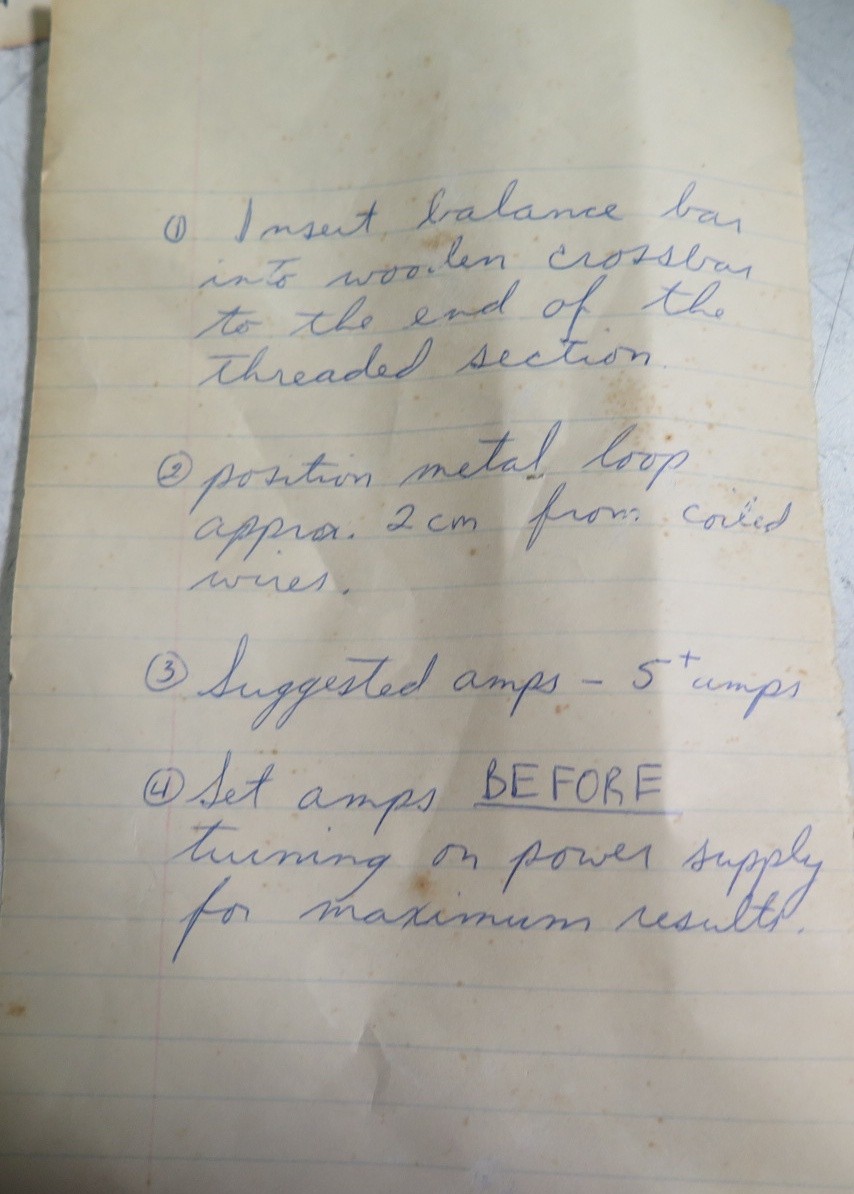 ① Insert balance bar
into wooden crossbar
to the end of the
threaded section.
② position metal loop
approx. 2 cm from coiled
wires.
③ Suggested amps - 5⁺ amps
④ Set amps BEFORE
turning on power supply
for maximum results.